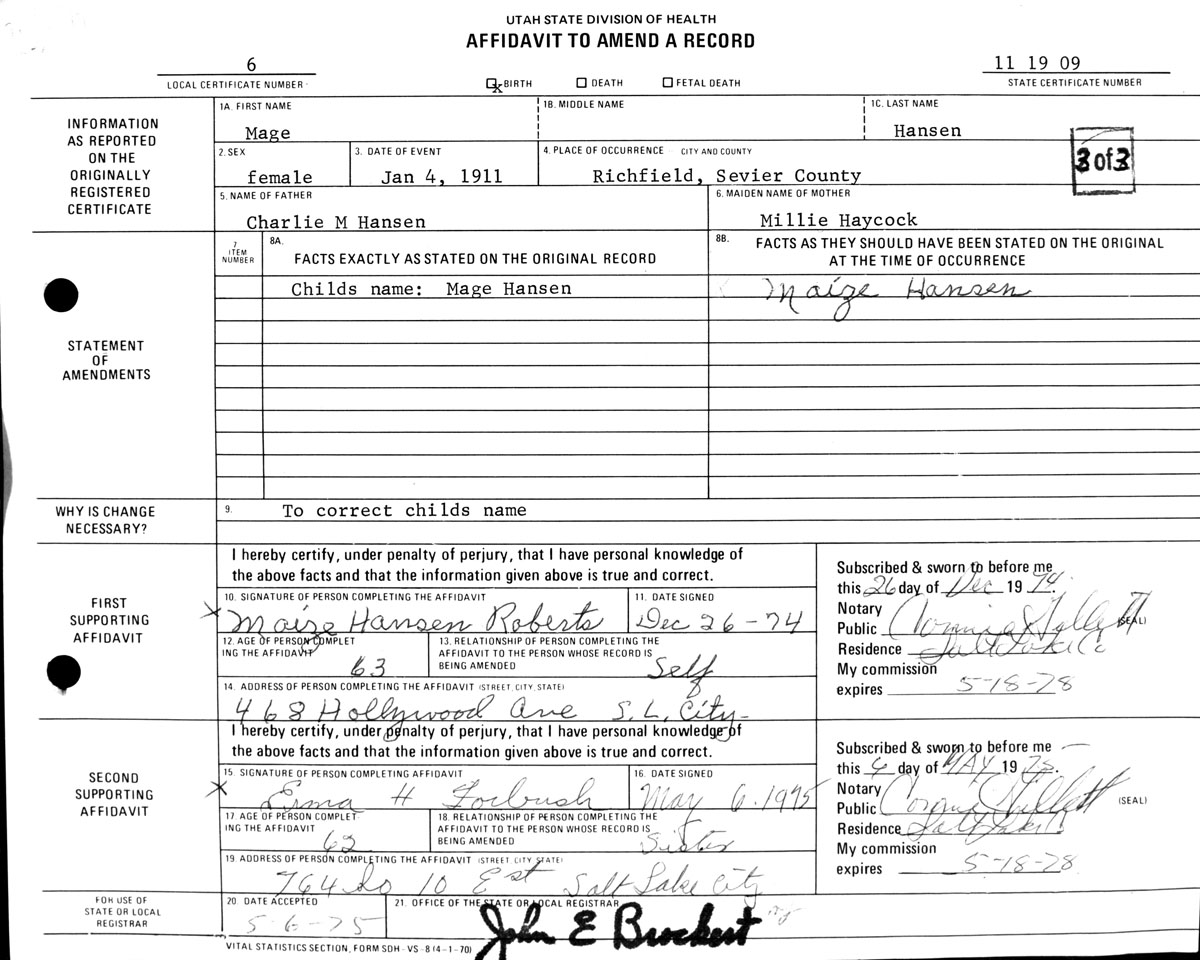 UTAH STATE DIVISION OF HEALTH
AFFIDAVIT TO AMEND A RECORD
6
LOCAL CERTIFICATE NUMBER
x BIRTH DEATH FETAL DEATH
11 19 09
STATE CERTIFICATE NUMBER
INFORMATION
AS REPORTED
ON THE
ORIGINALLY
REGISTERED
CERTIFICATE
1A. FIRST NAME
Mage
1B. MIDDLE NAME
1C. LAST NAME
Hansen
2. SEX
female
3. DATE OF EVENT
Jan 4, 1911
4. PLACE OF OCCURRENCE - CITY AND COUNTY
Richfield, Sevier County
3 of 3
5. NAME OF FATHER
Charlie M Hansen
6. MAIDEN NAME OF MOTHER
Millie Haycock
STATEMENT
OF
AMENDMENTS
7
ITEM
NUMBER
8A.
FACTS EXACTLY AS STATED ON THE ORIGINAL RECORD
8B. FACTS AS THEY SHOULD HAVE BEEN STATED ON THE ORIGINAL
AT THE TIME OF OCCURRENCE
Childs name: Mage Hansen
Maize Hansen
WHY IS CHANGE
NECESSARY?
9. To correct childs name
FIRST
SUPPORTING
AFFIDAVIT
I hereby certify, under penalty of perjury, that I have personal knowledge of
the above facts and that the information given above is true and correct.
10. SIGNATURE OF PERSON COMPLETING THE AFFIDAVIT
x Maize Hansen Roberts
11. DATE SIGNED
Dec 26-74
12. AGE OF PERSON COMPLET
ING THE AFFIDAVIT
63
13. RELATIONSHIP OF PERSON COMPLETING THE
AFFIDAVIT TO THE PERSON WHOSE RECORD IS
BEING AMENDED
Self
14. ADDRESS OF PERSON COMPLETING THE AFFIDAVIT (STREET, CITY, STATE)
468 Hollywood Ave S.L. City
Subscribed & sworn to before me
this 26 day of Dec 19 74.
Notary
Public Connie Gillett (SEAL)
Residence Salt Lake Co
My commission
expires 5-18-78
SECOND
SUPPORTING
AFFIDAVIT
I hereby certify, under penalty of perjury, that I have personal knowledge of
the above facts and that the information given above is true and correct.
15. SIGNATURE OF PERSON COMPLETING AFFIDAVIT
x Erma H Forbush
16. DATE SIGNED
May 6. 1975
17. AGE OF PERSON COMPLET
ING THE AFFIDAVIT
62
18. RELATIONSHIP OF PERSON COMPLETING THE
AFFIDAVIT TO THE PERSON WHOSE RECORD IS
BEING AMENDED
Sister
19. ADDRESS OF PERSON COMPLETING THE AFFIDAVIT (STREET, CITY STATE)
764 So 10 Est Salt Lake City
Subscribed & sworn to before me
this 6 day of MAY 19 75.
Notary
Public Connie Gillett (SEAL)
Residence Salt Lake
My commission
expires 5-18-78
FOR USE OF
STATE OR LOCAL
REGISTRAR
20. DATE ACCEPTED
5-6-75
21. OFFICE OF THE STATE OR LOCAL REGISTRAR
John E Brockert
VITAL STATISTICS SECTION, FORM SDH-VS-8 (4-1-70)